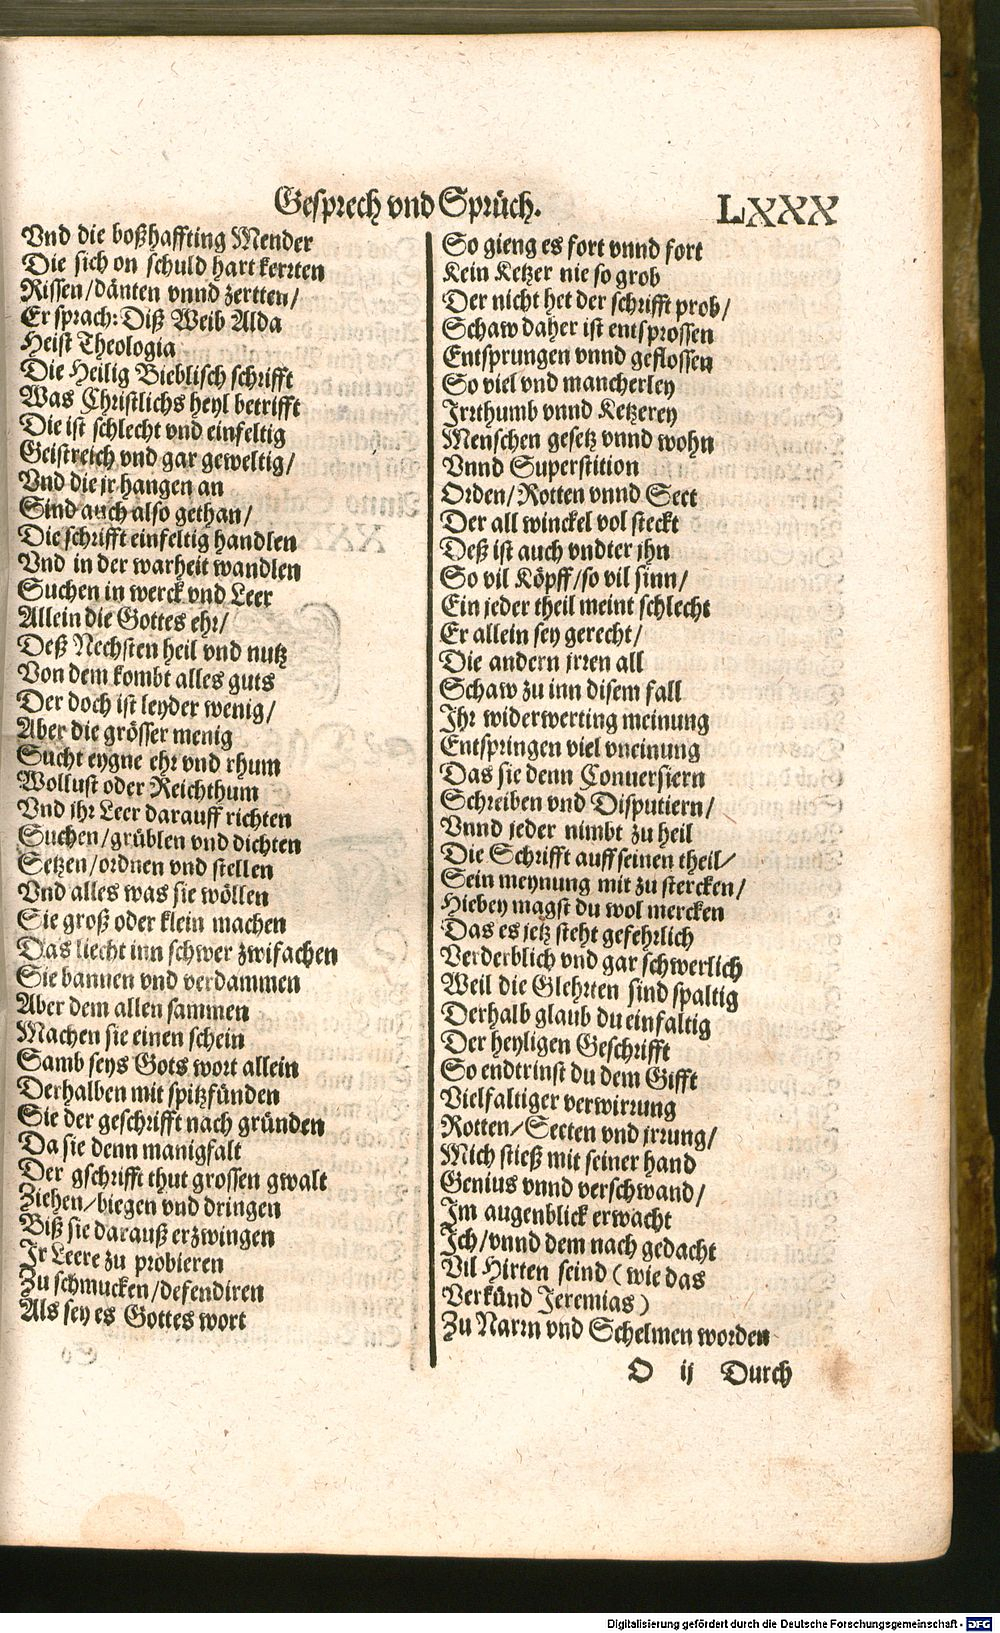 Gesprech vnd Sprüch. LXXX
Vnd die boßhaffting Mender
Die sich on schuld hart kerrten
Rissen/dänten vnnd zertten/
Er sprach: Diß Weib Alda
Heist Theologia
Die Heilig Bieblisch schrifft
Was Christlichs heyl betrifft
Die ist schlecht vnd einfeltig
Geistreich vnd gar geweltig/
Vnd die jr hangen an
Sind auch also gethan/
Die schrifft einfeltig handlen
Vnd in der warheit wandlen
Suchen in werck vnd Leer
Allein die Gottes ehr/
Deß Nechsten heil vnd nutz
Von dem kombt alles guts
Der doch ist leyder wenig/
Aber die grösser menig
Sucht eygne ehr vnd rhum
Wollust oder Reichthum
Vnd jhr Leer darauff richten
Suchen/grüblen vnd dichten
Setzen/ordnen vnd stellen
Vnd alles was sie wöllen
Sie groß oder klein machen
Das liecht inn schwer zwifachen
Sie bannen vnd verdammen
Aber dem allen sammen
Machen sie einen schein
Samb seys Gots wort allein
Derhalben mit spitzfünden
Sie der geschrifft nach gründen
Da sie denn manigfalt
Der gschrifft thut grossen gwalt
Ziehen/biegen vnd dringen
Biß sie darauß erzwingen
Jr Leere zu probieren
Zu schmucken/defendiren
Als sey es Gottes wort
So gieng es fort vnnd fort
Kein Ketzer nie so grob
Der nicht het der schrifft prob/
Schaw daher ist entsprossen
Entsprungen vnnd geflossen
So viel vnd mancherley
Jrrthumb vnnd Ketzerey
Menschen gesetz vnnd wohn
Vnnd Superstition
Orden/Rotten vnnd Sect
Der all winckel vol steckt
Deß ist auch vndter jhn
So vil Köpff/so vil sinn/
Ein jeder theil meint schlecht
Er allein sey gerecht/
Die andern jrren all
Schaw zu inn disem fall
Ihr widerwerting meinung
Entspringen viel vneinung
Das sie denn Conuersiern
Schreiben vnd Disputiern/
Vnnd jeder nimbt zu heil
Die Schrifft auff seinen theil/
Sein meynung mit zu stercken/
Hiebey magst du wol mercken
Das es jetz steht gefehrlich
Verderblich vnd gar schwerlich
Weil die Glehrten sind spaltig
Derhalb glaub du einfaltig
Der heyligen Geschrifft
So endtrinst du dem Gifft
Vielfaltiger verwirrung
Rotten/Secten vnd jrrung/
Mich stieß mit seiner hand
Genius vnnd verschwand/
Im augenblick erwacht
Ich/vnnd dem nach gedacht
Vil Hirten seind (wie das
Verkünd Jeremias)
Zu Narrn vnd Schelmen worden
O ij Durch
Digitalisierung gefördert durch die Deutsche Forschungsgemeinschaft - DFG